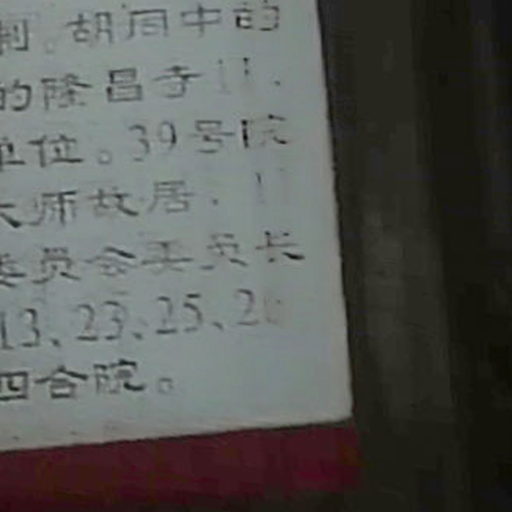 制。胡同中的
的隆昌寺11、
单位。39号院
大师故居、11
委员会委员长
13、23、25、26
四合院。